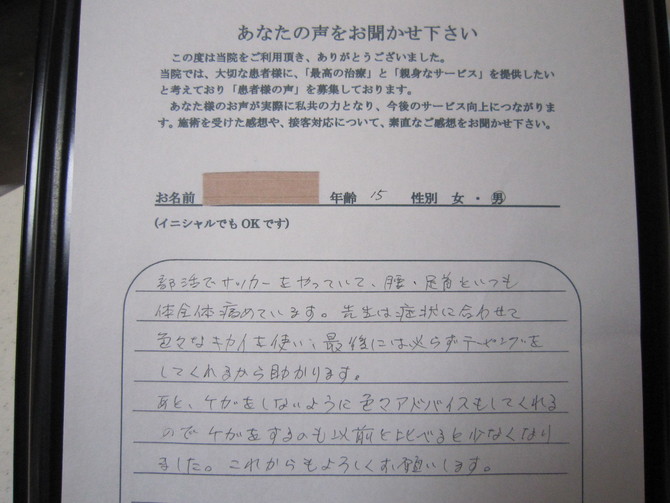 あなたの声をお聞かせ下さい
この度は当院をご利用頂き、ありがとうございました。
当院では、大切な患者様に、「最高の治療」と「親身なサービス」を提供したい
と考えており「患者様の声」を募集しております。
あなた様のお声が実際に私共の力となり、今後のサービス向上につながりま
す。施術を受けた感想や、接客対応について、素直なご感想をお聞かせ下さい。
お名前 年齢 15 性別 女・男
(イニシャルでもOKです)
部活でサッカーをやっていて、腰・足首といつも
体全体痛めています。先生は症状に合わせて
色々なキカイを使い、最後には必らずテーピングを
してくれるから助かります。
あと、ケガをしないように色々アドバイスもしてくれる
のでケガをするのも以前と比べると少なくなり
ました。これからもよろしくお願いします。